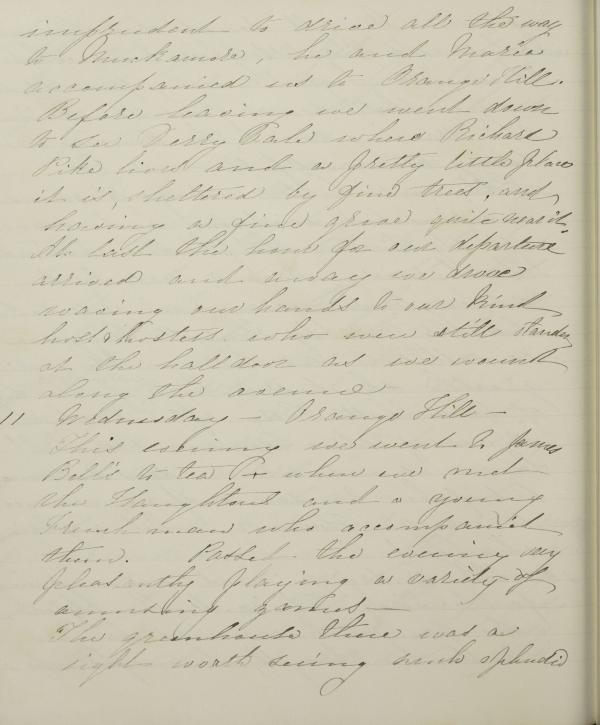 imprudent to drive all the way
to Muckamore, he and Maria
accompanied us to Orange Hill.
Before leaving we went down
to see Derry Vale where Richard
Pike lives and a pretty little place
it is, sheltered by fine trees, and
having a fine grove quite near it.
At last the hour for our departure
arrived and away we drove
waving our hands to our kind
host & hostess who were still standing
at the hall door as we wound
along the avenue
11 Wednesday — Orange Hill —
This evening we went to James
Bell's to tea & where we met
the Haughtons and a young
Frenchman who accompanied
them. Passed the evening very
pleasantly playing a variety of
amusing games —
The greenhouse there was a
sight worth seeing such splendid